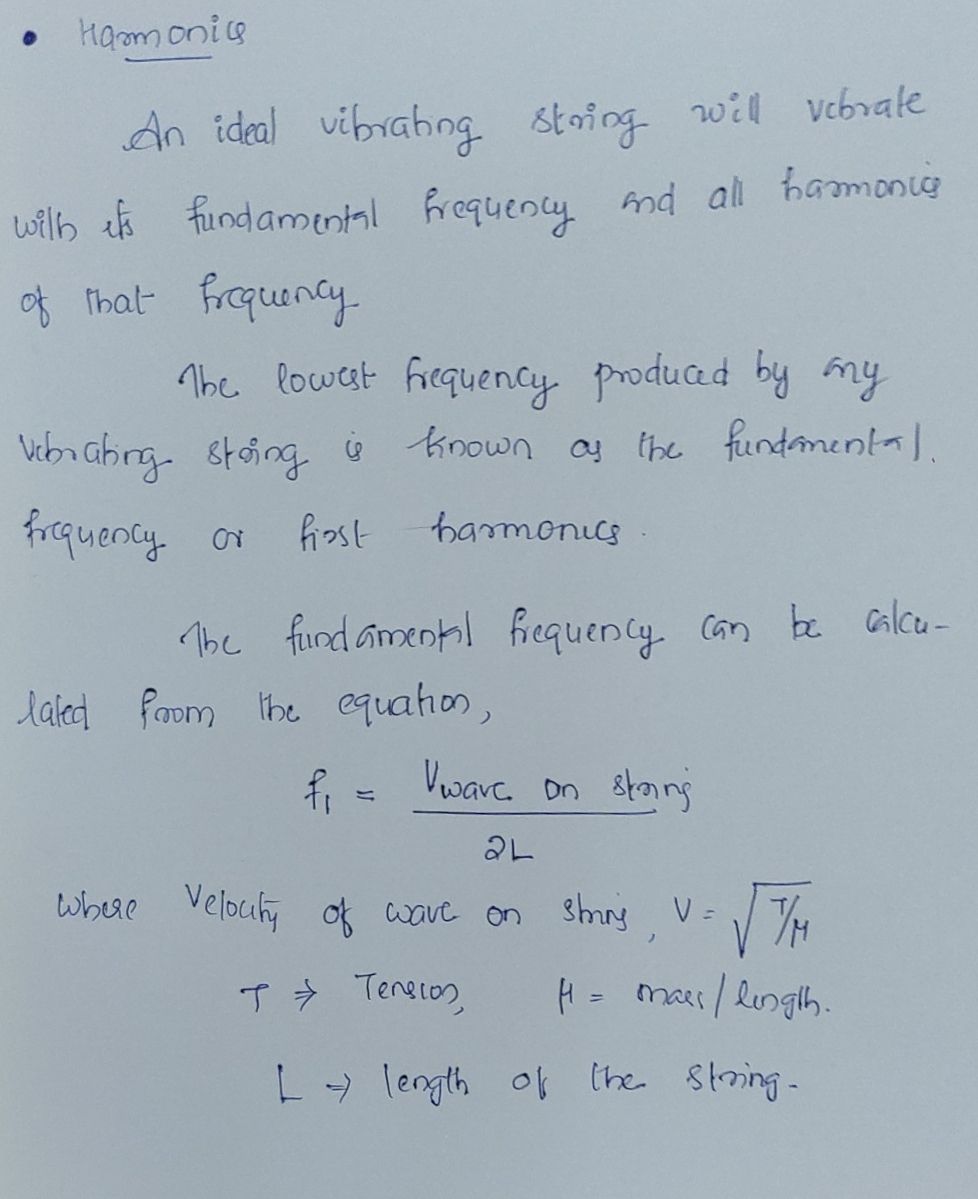 • Harmonics
An ideal vibrating string will vibrate
with its fundamental frequency and all harmonics
of that frequency
The lowest frequency produced by any
vibrating string is known as the fundamental.
frequency or first harmonics.
The fundamental frequency can be calcu-
lated from the equation,
f₁ = Vwave on string
2L
where Velocity of wave on string, V = √T/μ
T ⇒ Tension, μ = mass/length.
L → length of the string.